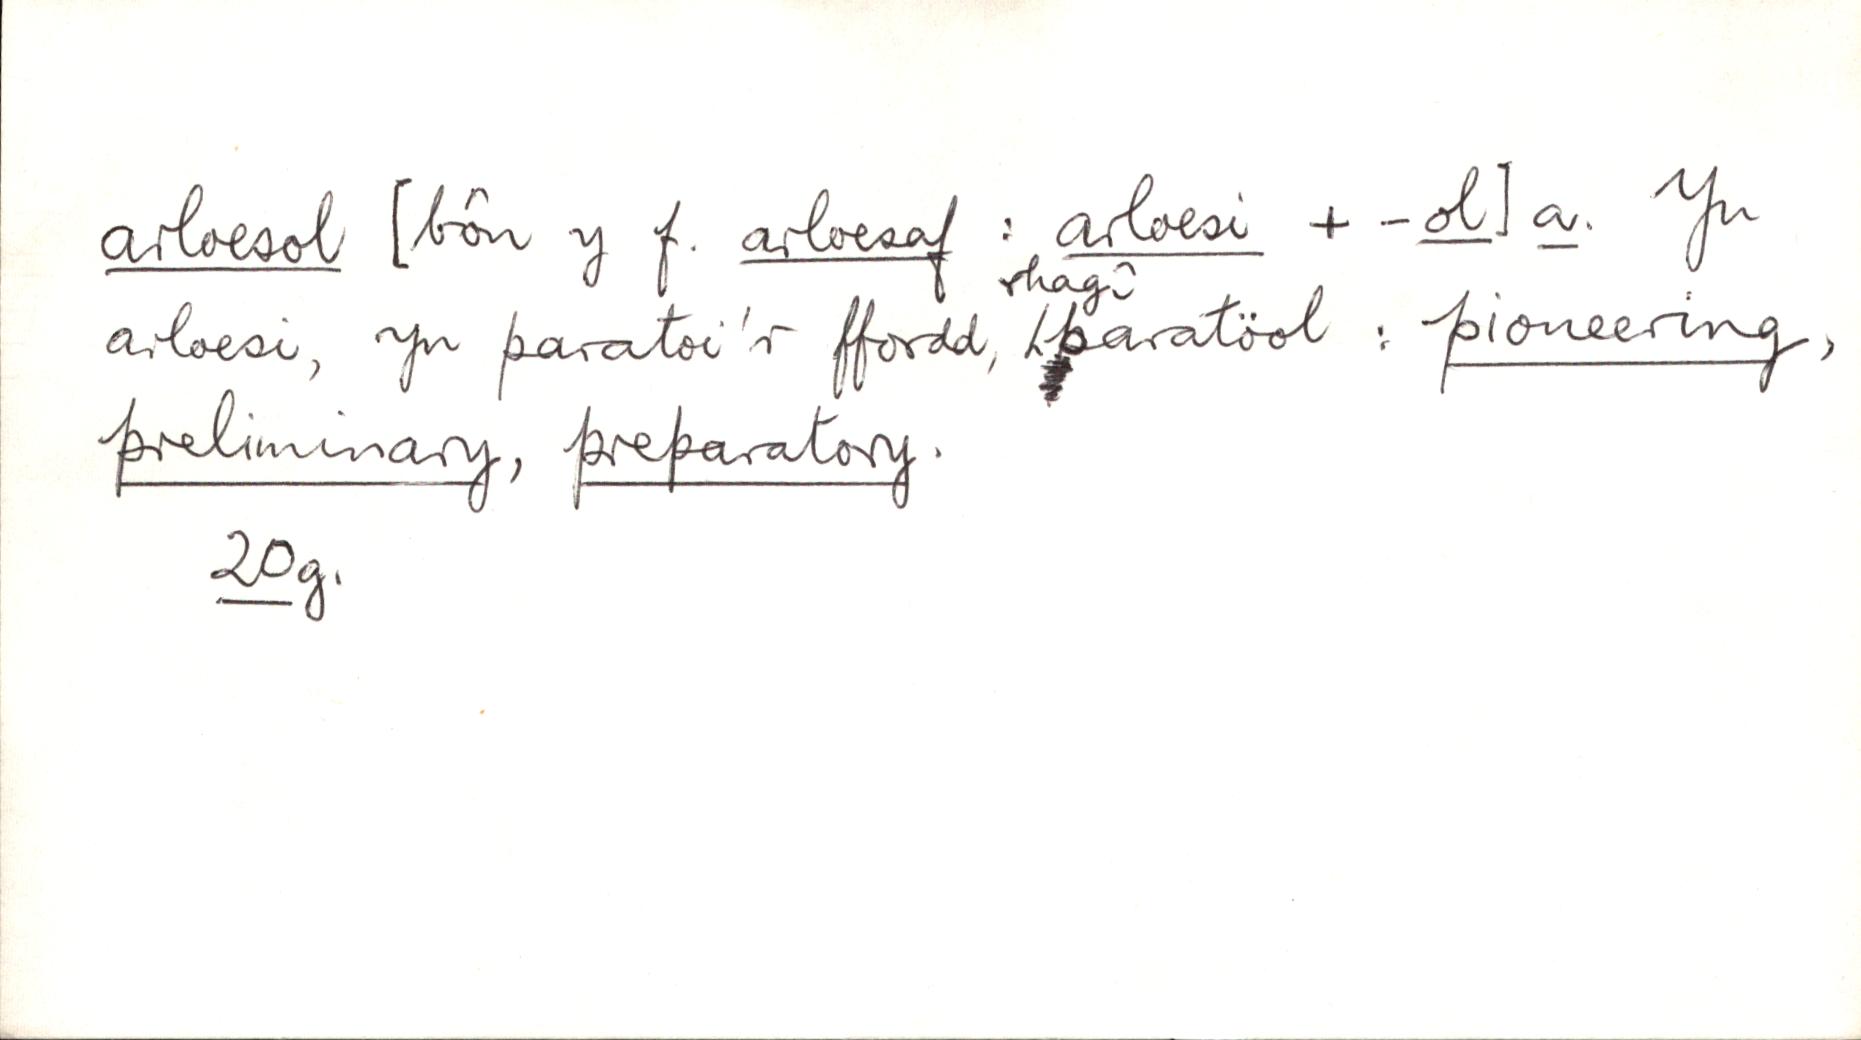 arloesol [bôn y f. arloesaf : arloesi + -ol] a. Yn
arloesi, yn paratoi'r ffordd, rhagbaratöol : pioneering,
preliminary, preparatory.
20g.